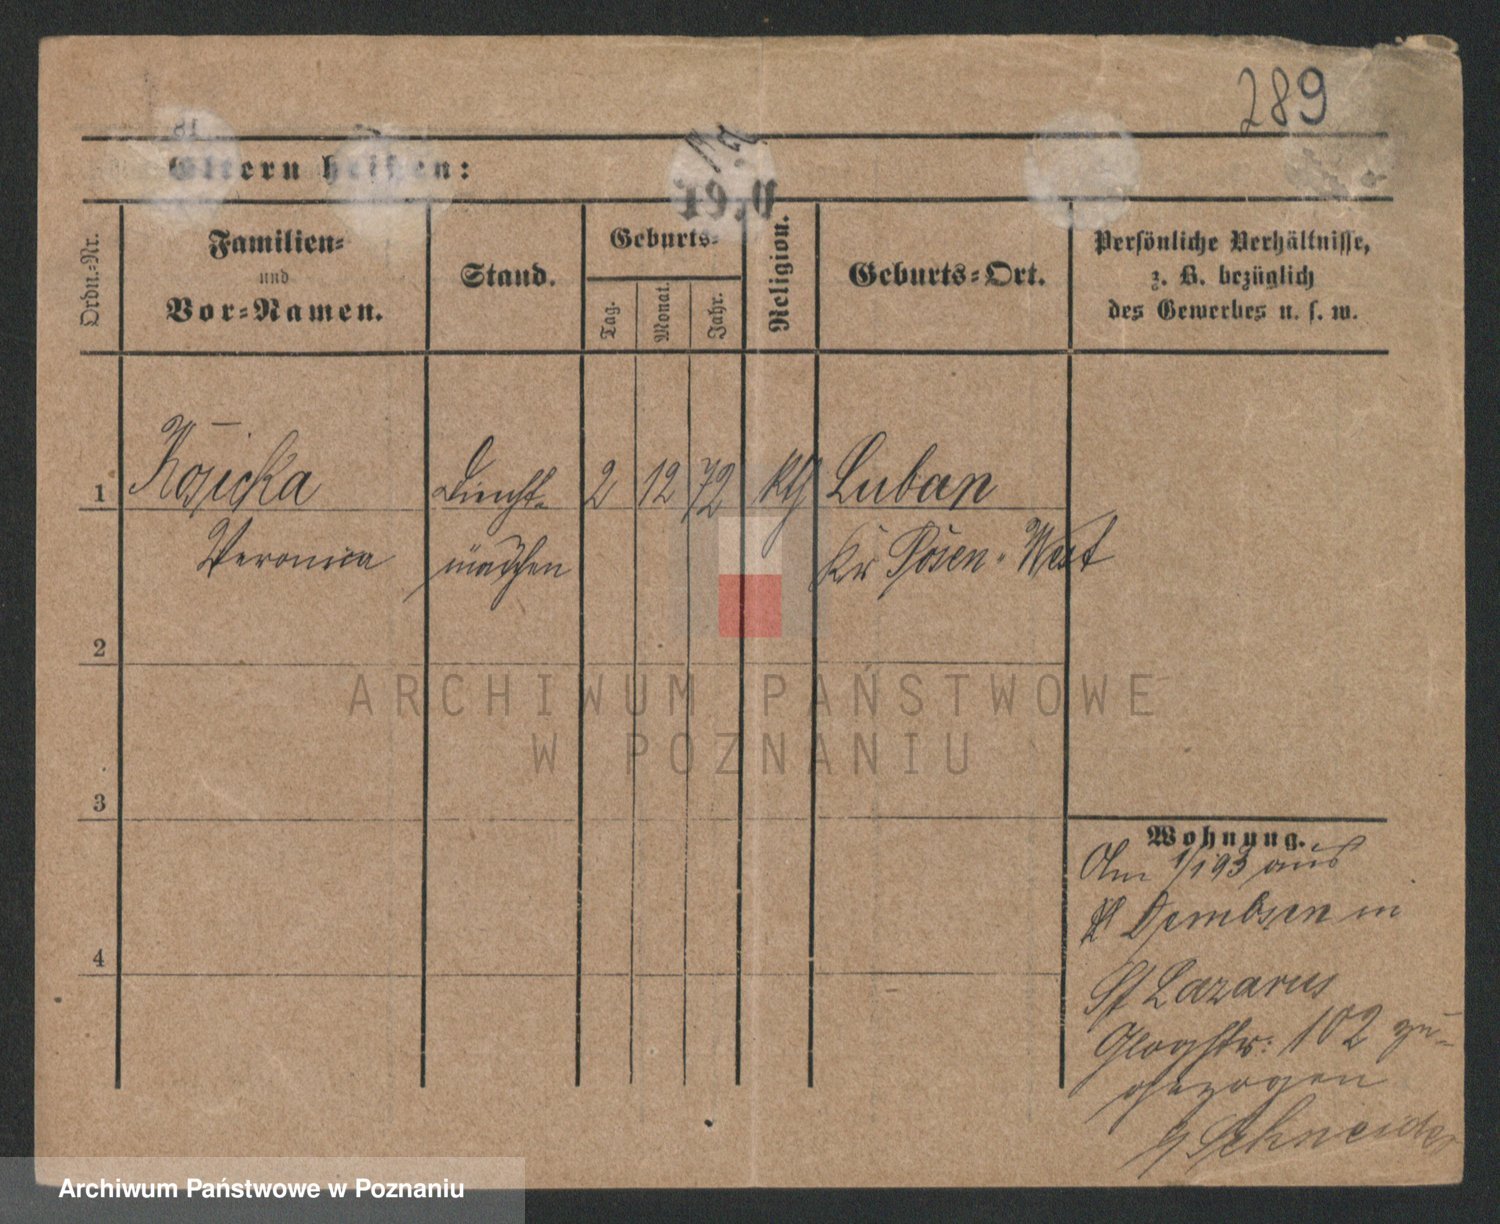 289
Eltern heißen:
Ordn.-Nr.
Familien-
und
Vor-Namen.
Stand.
Geburts-
Tag.
Monat.
Jahr.
Religion.
Geburts-Ort.
Persönliche Verhältnisse,
z. B. bezüglich
des Gewerbes u. s. w.
1 Kosicka Dienst- 2 12 72 kth Luban
Veronica mädchen Kr Posen-West
2
3
4
Wohnung.
Am 1/1 93 aus
Dembsen in
St Lazarus
Glogstr: 102 zu-
gezogen
Schneider
ARCHIWUM PAŃSTWOWE
W POZNANIU
Archiwum Państwowe w Poznaniu